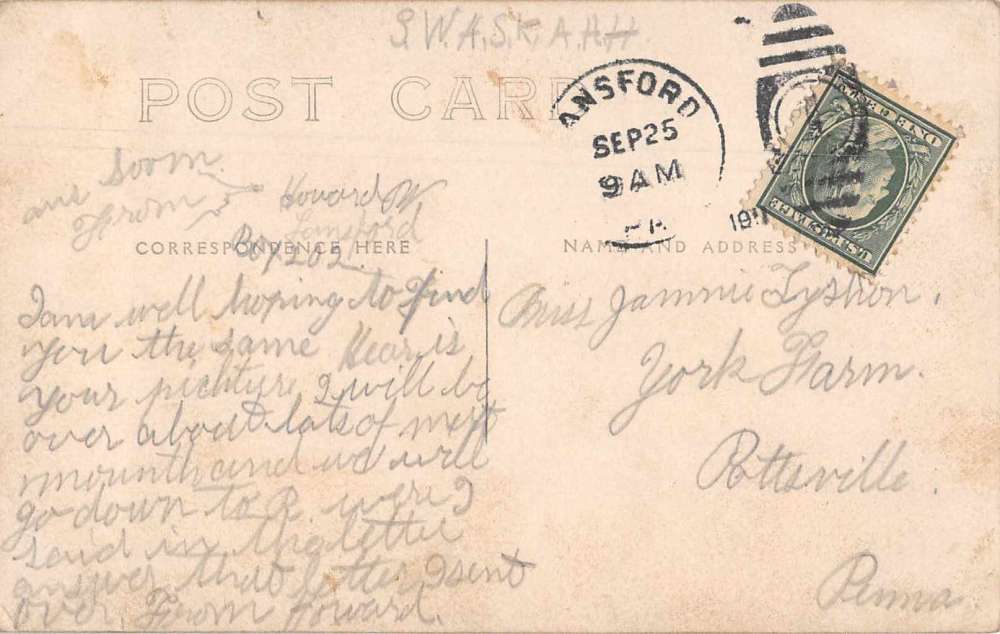 S.W.A.S.K.A.H.H.
POST CARD
ANSFORD
SEP 25
9 AM
PA.
191
ans Soom.
From Howard W
Lansford
Box 202
CORRESPONDENCE HERE
NAME AND ADDRESS
I am well hoping to find
you the same Hear is
your pichture I will be
over about lats of next
mounth and we will
go down to R. were I
said in the letter
answer that letter I sent
over From Howard.
Miss Jammie Lystion.
York Farm.
Pottsville.
Penna.